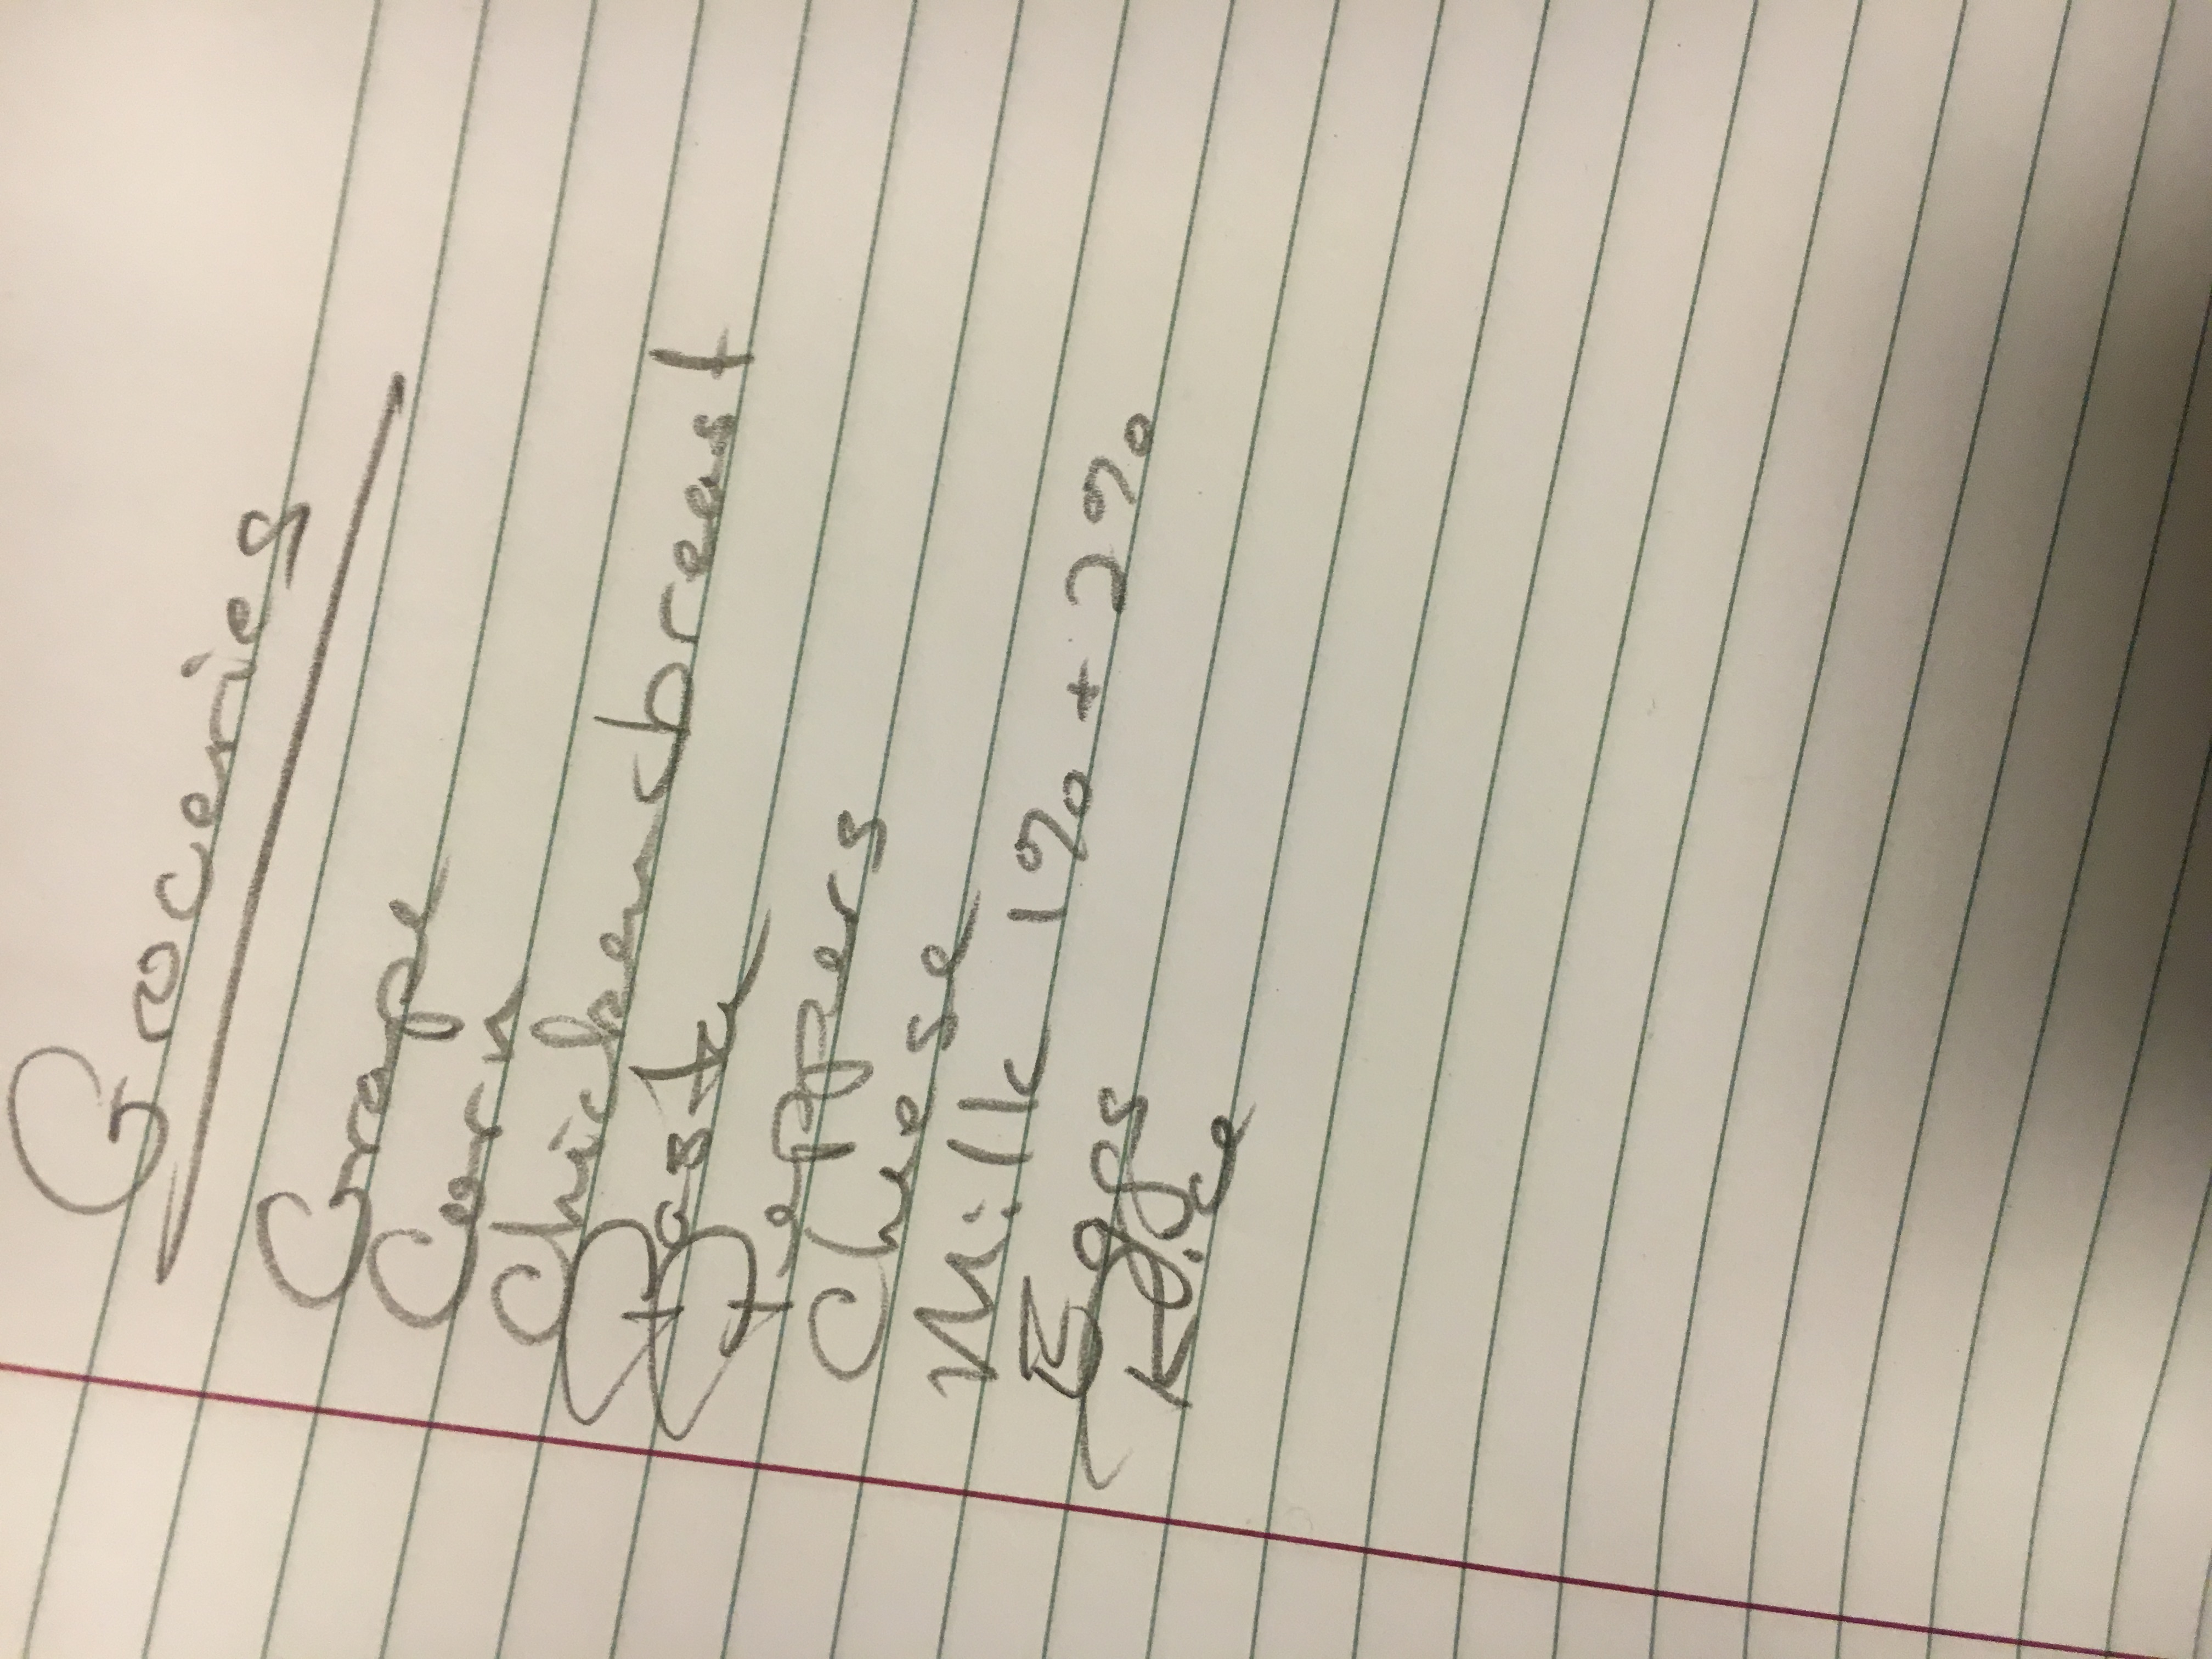 Groceries
Grape
Corn
Chicken breast
Pasta
Peppers
Cheese
Milk 1% + 2%
Eggs
Rice